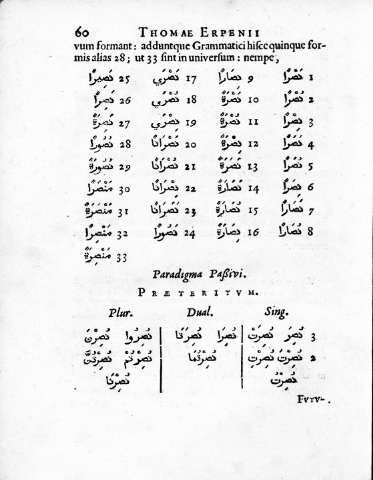 60 THOMAE ERPENII
vum formant: adduntque Grammatici hisce quinque for-
mis alias 28; ut 33 sint in universum: nempe,
نَصْرًا 1 نِصَارًا 9 نَصْرَي 17 نَصِيرًا 25
نِصْرًا 2 نَصْرَةً 10 نِصْرَي 18 26
نُصْرًا 3 نِصْرَةً 11 نُصْرَي 19 نَصِرَةً 27
نَصَرًا 4 نُصْرَةً 12 نَصْرَانًا 20 نُصُورًا 28
نَصِرًا 5 نَصَرَةً 13 نِصْرَانًا 21 نُصُورَةً 29
نِصَرًا 6 نَصَارَةً 14 نُصْرَانًا 22 مَنْصَرًا 30
نَصَارًا 7 نِصَارَةً 15 نَصَرَانًا 23 مَنْصَرَةً 31
نُصَارًا 8 نُصَارَةً 16 نَصُورًا 24 مَنْصِرًا 32
مَنْصِرَةً 33
Paradigma Paſſivi.
PRÆTERITVM.
Plur. Dual. Sing.
3 نُصِرَ نُصِرَتْ نُصِرَا نُصِرَتَا نُصِرُوا نُصِرْنَ
2 نُصِرْتَ نُصِرْتِ نُصِرْتُمَا نُصِرْتُمْ نُصِرْتُنَّ
نُصِرْتُ نُصِرْنَا
FVTV-